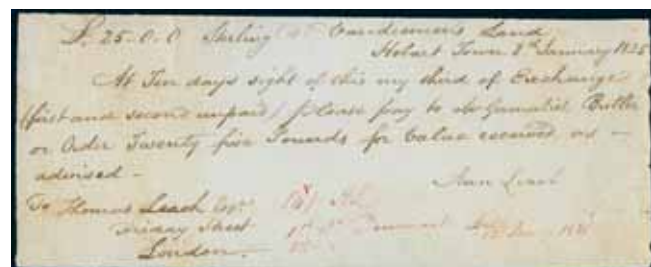 £. 25.0.0 Sterling Vandiemen's Land
Hobart Town 8th January 1825
At Ten days sight of this my third of Exchange
(first and second unpaid) please pay to Mr Gamaliel Butler
or Order Twenty five Pounds for Value received as —
advised —
Ann Leach
To Thomas Leach Esqr.
Friday Street
London.